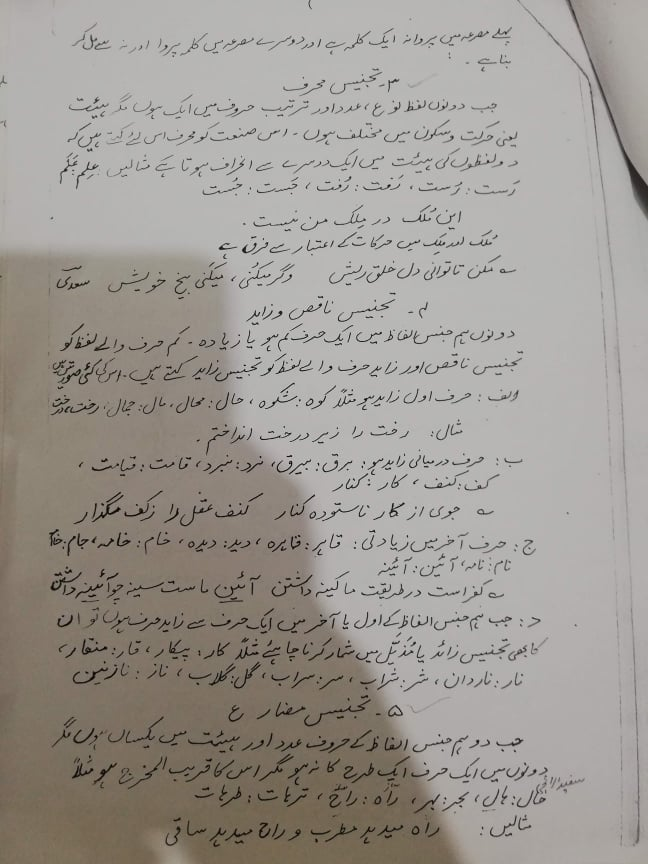 پہلے مصرعہ میں پروانہ ایک کلمہ ہے اور دوسرے مصرعہ میں کلمہ پروا اور نہ سے مل کر
بنا ہے۔
۳۔ تجنیس محرف
جب دونوں لفظ نوع، عدد اور ترتیب حروف میں ایک ہوں مگر ہیئت
یعنی حرکت و سکون میں مختلف ہوں۔ اس صنعت کو محرف اس لئے کہتے ہیں کہ
دو لفظوں کی ہیئت میں ایک دوسرے سے انحراف ہوتا ہے مثالیں: عِلم عَلَم
رَست: رُست، رَفت: رُفت، جَست: جُست
این مُلک در مِلک من نیست۔
مُلک اور مِلک میں حرکات کے اعتبار سے فرق ہے
؎ مکن تا توانی دل خلق ریش وگر میکنُی، میکَنی بیخ خویش سعدی
۴۔ تجنیس ناقص و زاید
دونوں ہم جنس الفاظ میں ایک حرف کم ہو یا زیادہ۔ کم حرف والے لفظ کو
تجنیس ناقص اور زاید حرف والے لفظ کو تجنیس زاید کہتے ہیں۔ اس کی کئی صورتیں ہیں
الف: حرف اول زاید ہو مثلاً کوہ: شکوہ، حال: محال، مال: جمال، رخت، درخت
مثال: رخت را زیر درخت انداختم۔
ب: حرف درمیانی زاید ہو: برق: بیرق، نرد: نبرد، قامت: قیامت،
کف: کنف، کار: کنار
؎ جوی از کار ناستودہ کنار کنف عقل را ز کف مگذار
ج: حرف آخر میں زیادتی: قاہر: قاہرہ، دید: دیدہ، خام: خامہ، جام: جامہ
نام: نامہ، آئین: آئینہ
؎ کفر است در طریقت ما کینہ داشتن آئین ماست سینہ چو آئینہ داشتن
د: جب ہم جنس الفاظ کے اول یا آخر میں ایک حرف سے زاید حرف ہوں تو ان
کا بھی تجنیس زائد یا مُذَیَّل میں شمار کرنا چاہئے مثلاً کار: پیکار، قار: منقار،
نار: ناردان، شر: شراب، سر: سراب، گل: گلاب، ناز: نازنین
۵۔ تجنیس مضارع
جب دو ہم جنس الفاظ کے حروف عدد اور ہیئت میں یکساں ہوں مگر
دونوں میں ایک حرف ایک طرح کا نہ ہو مگر اس کا قریب المخرج ہو مثلاً
حال: ہال، بحر: بہر، راہ: راح، ترہات: طرہات
مثالیں: راہ میدہد مطرب و راح میدہد ساقی